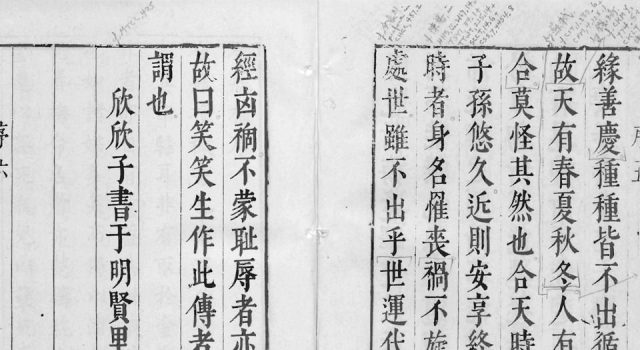 緣善慶種種皆不出循
故天有春夏秋冬人有
合莫怪其然也合天時
子孫悠久近則安享終
時者身名罹喪禍不旋
處世雖不出乎世運代
經凶禍不蒙恥辱者亦
故曰笑笑生作此傳者
謂也
欣欣子書于明賢里